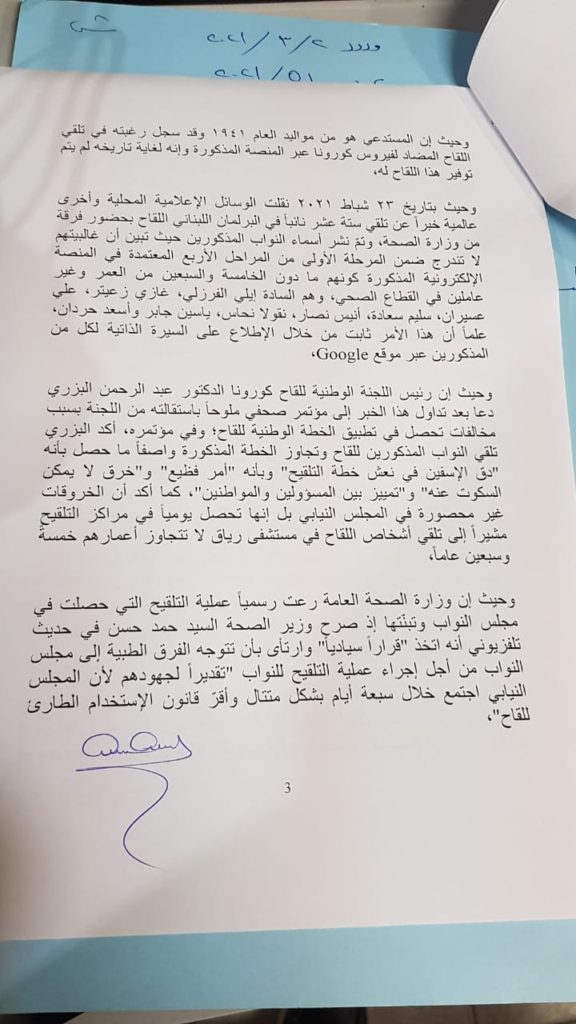 ورود ٢ / ٣ / ٢٠٢١
٥١ / ٢٠٢١
وحيث إن المستدعي هو من مواليد العام ١٩٤١ وقد سجل رغبته في تلقي
اللقاح المضاد لفيروس كورونا عبر المنصة المذكورة وإنه لغاية تاريخه لم يتم
توفير هذا اللقاح له،
وحيث بتاريخ ٢٣ شباط ٢٠٢١ نقلت الوسائل الإعلامية المحلية وأخرى
عالمية خبراً عن تلقي ستة عشر نائباً في البرلمان اللبناني اللقاح بحضور فرقة
من وزارة الصحة، وتمّ نشر أسماء النواب المذكورين حيث تبين أن غالبيتهم
لا تندرج ضمن المرحلة الأولى من المراحل الأربع المعتمدة في المنصة
الإلكترونية المذكورة كونهم ما دون الخامسة والسبعين من العمر وغير
عاملين في القطاع الصحي، وهم السادة إيلي الفرزلي، غازي زعيتر، علي
عسيران، سليم سعادة، أنيس نصار، نقولا نحاس، ياسين جابر وأسعد حردان،
علماً أن هذا الأمر ثابت من خلال الإطلاع على السيرة الذاتية لكل من
المذكورين عبر موقع Google،
وحيث إن رئيس اللجنة الوطنية للقاح كورونا الدكتور عبد الرحمن البزري
دعا بعد تداول هذا الخبر إلى مؤتمر صحفي ملوحاً باستقالته من اللجنة بسبب
مخالفات تحصل في تطبيق الخطة الوطنية للقاح؛ وفي مؤتمره، أكد البزري
تلقي النواب المذكورين للقاح وتجاوز الخطة المذكورة واصفاً ما حصل بأنه
"دق الإسفين في نعش خطة التلقيح" وبأنه "أمر فظيع" و"خرق لا يمكن
السكوت عنه" و"تمييز بين المسؤولين والمواطنين"، كما أكد أن الخروقات
غير محصورة في المجلس النيابي بل إنها تحصل يومياً في مراكز التلقيح
مشيراً إلى تلقي أشخاص اللقاح في مستشفى رياق لا تتجاوز أعمارهم خمسة
وسبعين عاماً،
وحيث إن وزارة الصحة العامة رعت رسمياً عملية التلقيح التي حصلت في
مجلس النواب وتبنّتها إذ صرح وزير الصحة السيد حمد حسن في حديث
تلفزيوني أنه اتخذ "قراراً سيادياً" وارتأى بأن تتوجه الفرق الطبية إلى مجلس
النواب من أجل إجراء عملية التلقيح للنواب "تقديراً لجهودهم لأن المجلس
النيابي اجتمع خلال سبعة أيام بشكل متتال وأقرّ قانون الإستخدام الطارئ
للقاح"،
3